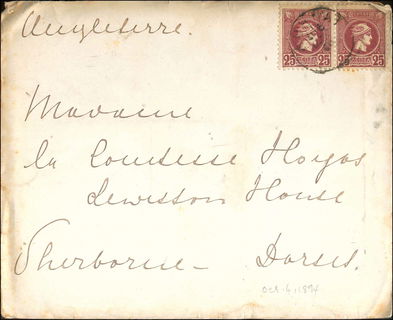 Angleterre.
25 25 25 25
Madame
la Comtesse Hoyos
Lewiston House
Sherborne - Dorset.
Oct. 6, 1894